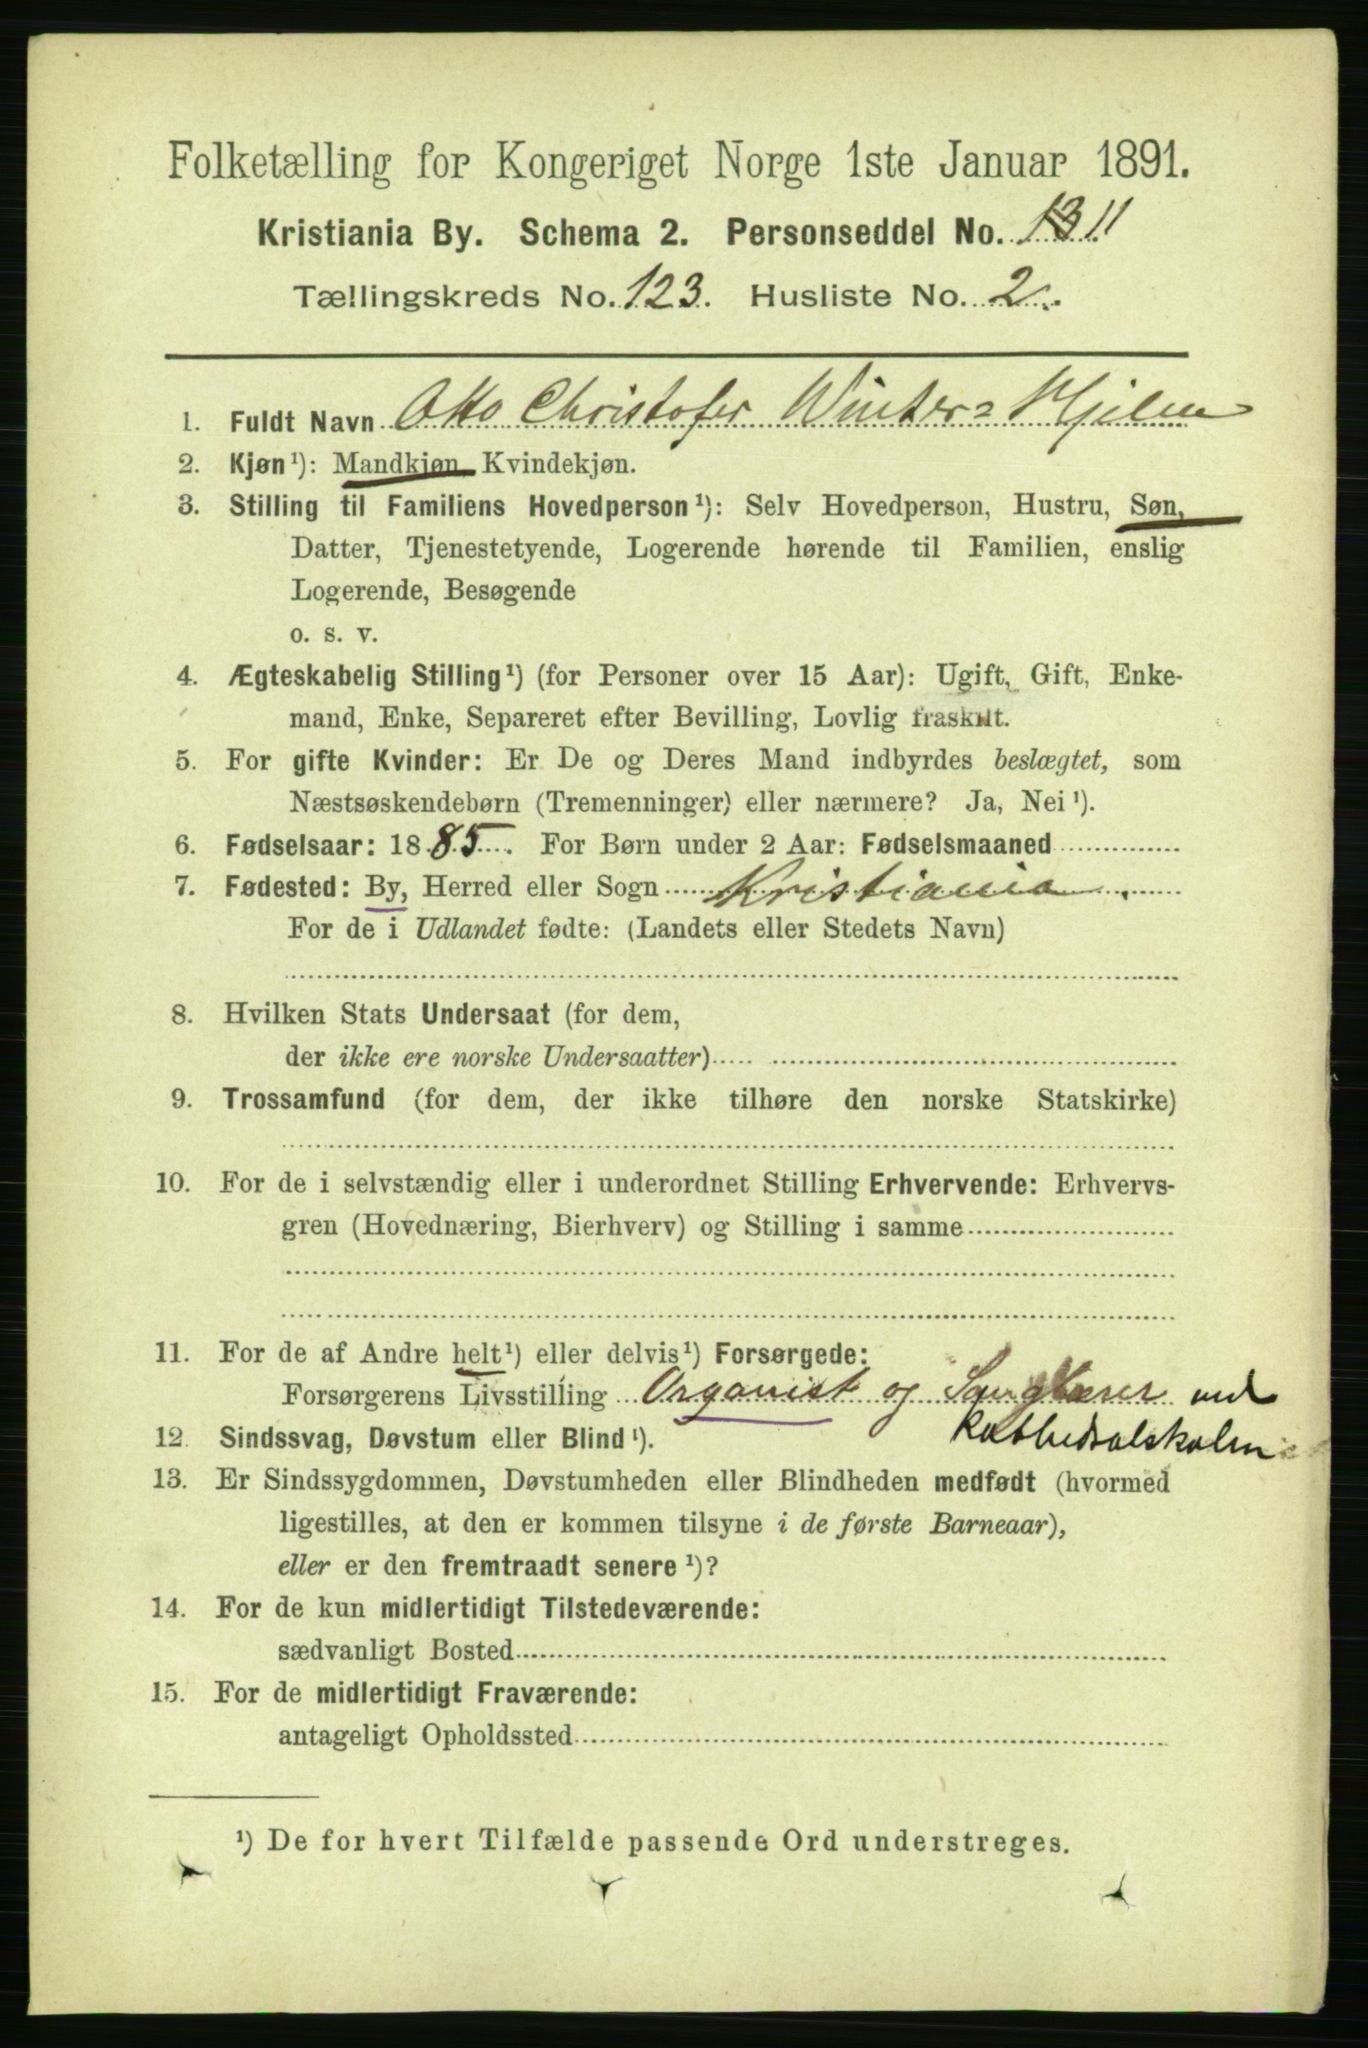 Folketælling for Kongeriget Norge 1ste Januar 1891.
Kristiania By. Schema 2. Personseddel No. 13 11
Tællingskreds No. 123. Husliste No. 2.
1. Fuldt Navn Otto Christofer Winter=Hjelm
2. Kjøn¹): Mandkjøn Kvindekjøn.
3. Stilling til Familiens Hovedperson¹): Selv Hovedperson, Hustru, Søn,
Datter, Tjenestetyende, Logerende hørende til Familien, enslig
Logerende, Besøgende
o. s. v.
4. Ægteskabelig Stilling¹) (for Personer over 15 Aar): Ugift, Gift, Enke-
mand, Enke, Separeret efter Bevilling, Lovlig fraskilt.
5. For gifte Kvinder: Er De og Deres Mand indbyrdes beslægtet, som
Næstsøskendebørn (Tremenninger) eller nærmere? Ja, Nei¹).
6. Fødselsaar: 1885. For Børn under 2 Aar: Fødselsmaaned
7. Fødested: By, Herred eller Sogn Kristiania.
For de i Udlandet fødte: (Landets eller Stedets Navn)
8. Hvilken Stats Undersaat (for dem,
der ikke ere norske Undersaatter)
9. Trossamfund (for dem, der ikke tilhøre den norske Statskirke)
10. For de i selvstændig eller i underordnet Stilling Erhvervende: Erhvervs-
gren (Hovednæring, Bierhverv) og Stilling i samme
11. For de af Andre helt¹) eller delvis¹) Forsørgede:
Forsørgerens Livsstilling Organist og Sanglærer ved
Kathedralskolen
12. Sindssvag, Døvstum eller Blind¹).
13. Er Sindssygdommen, Døvstumheden eller Blindheden medfødt (hvormed
ligestilles, at den er kommen tilsyne i de første Barneaar),
eller er den fremtraadt senere¹)?
14. For de kun midlertidigt Tilstedeværende:
sædvanligt Bosted
15. For de midlertidigt Fraværende:
antageligt Opholdssted
¹) De for hvert Tilfælde passende Ord understreges.